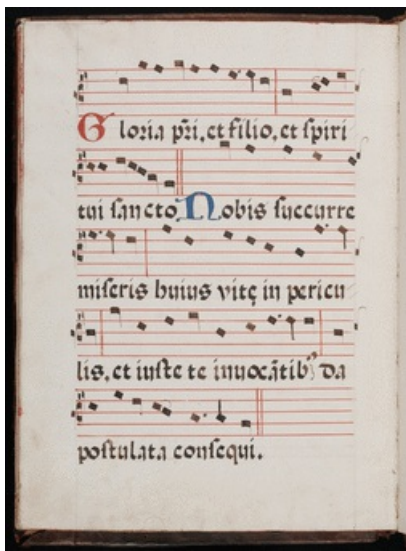 Gloria pr̄i, et filio, et ſpiri
tui ſancto Nobis ſuccurre
miſeris huius vitę in pericu
lis, et iuſte te inuocātibꝰ da
poſtulata conſequi.